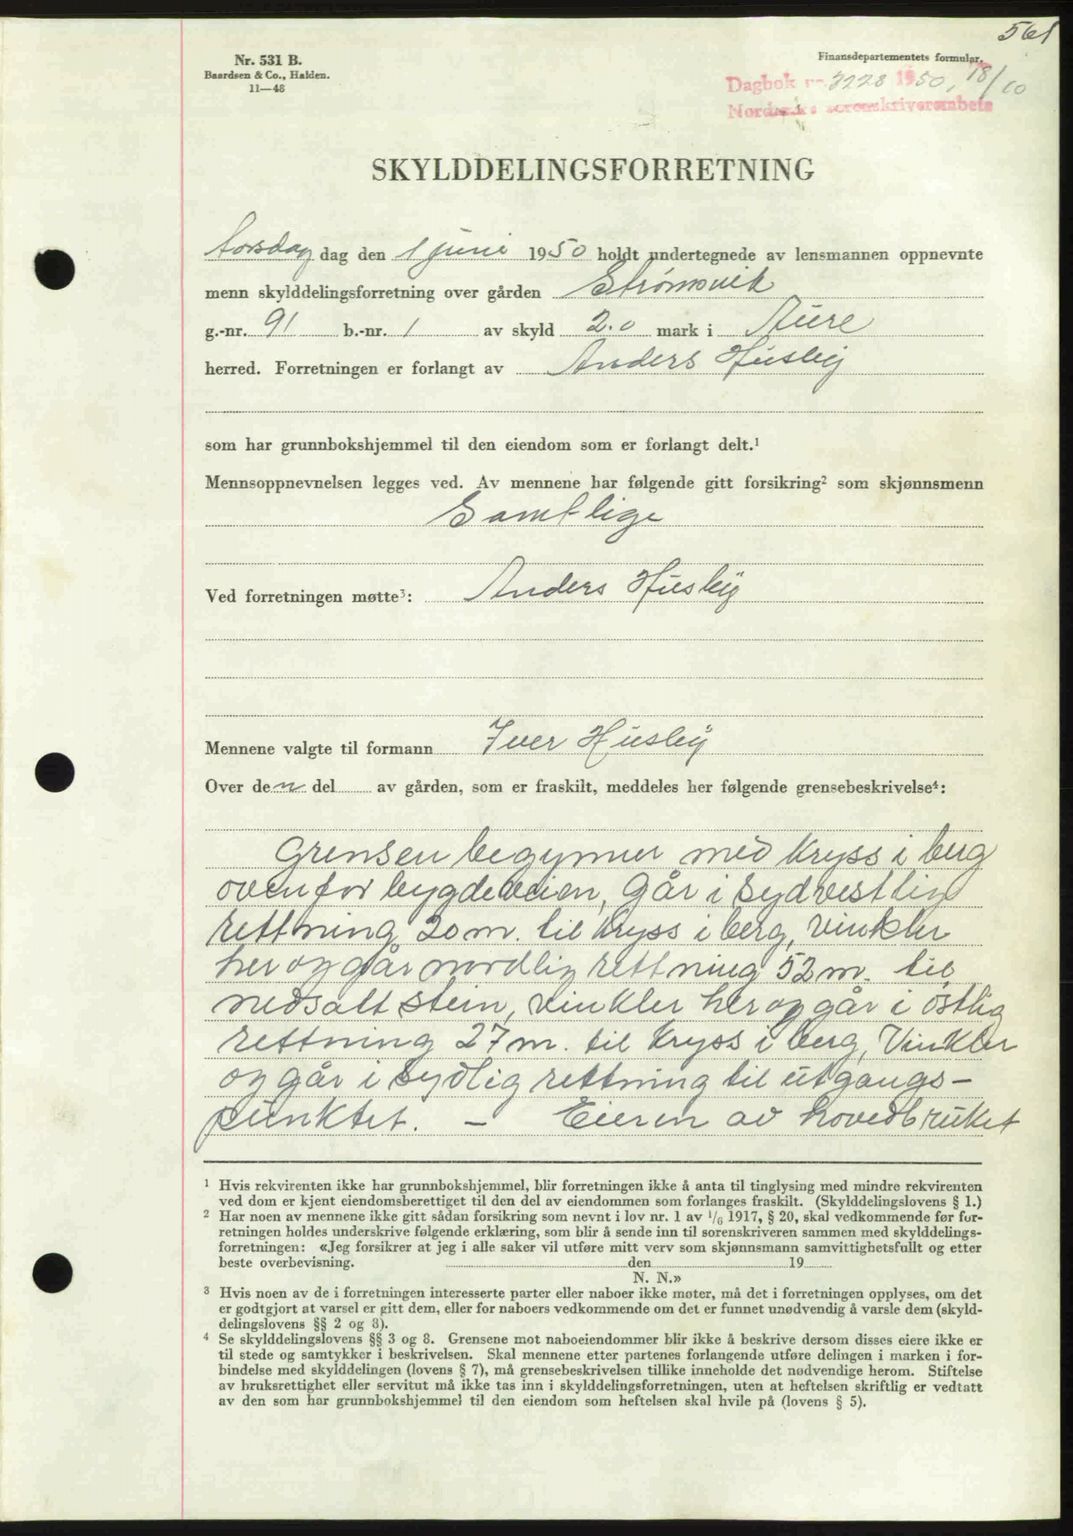 561
Nr. 531 B.
Baardsen & Co., Halden.
11—48
Finansdepartementets formular.
Dagbok nr. 3228 1950, 18/10
Nordmøre sorenskriverembete
SKYLDDELINGSFORRETNING
torsdag dag den 1 juni 1950 holdt undertegnede av lensmannen oppnevnte
menn skylddelingsforretning over gården Strømsvik
g.-nr. 91 b.-nr. 1 av skyld 2.0 mark i Aure
herred. Forretningen er forlangt av Anders Husby
som har grunnbokshjemmel til den eiendom som er forlangt delt.¹
Mennsoppnevnelsen legges ved. Av mennene har følgende gitt forsikring² som skjønnsmenn
Samtlige
Ved forretningen møtte³: Anders Husby
Mennene valgte til formann Iver Husby
Over den del av gården, som er fraskilt, meddeles her følgende grensebeskrivelse⁴:
Grensen begynner med kryss i berg
ovenfor bygdeveien, Går i sydvestlig
rettning 20 m. til kryss i berg, vinkler
her og går nordlig rettning 52 m. til
nedsatt stein, vinkler her og går i østlig
rettning 27 m. til kryss i berg, Vinkler
og går i sydlig rettning til utgangs-
punktet. — Eieren av hovedbruket
¹ Hvis rekvirenten ikke har grunnbokshjemmel, blir forretningen ikke å anta til tinglysing med mindre rekvirenten
ved dom er kjent eiendomsberettiget til den del av eiendommen som forlanges fraskilt. (Skylddelingslovens § 1.)
² Har noen av mennene ikke gitt sådan forsikring som nevnt i lov nr. 1 av 1/6 1917, § 20, skal vedkommende før for-
retningen holdes underskrive følgende erklæring, som blir å sende inn til sorenskriveren sammen med skylddelings-
forretningen: «Jeg forsikrer at jeg i alle saker vil utføre mitt verv som skjønnsmann samvittighetsfullt og etter
beste overbevisning. den 19
N. N.»
³ Hvis noen av de i forretningen interesserte parter eller naboer ikke møter, må det i forretningen opplyses, om det
er godtgjort at varsel er gitt dem, eller for naboers vedkommende om det er funnet unødvendig å varsle dem (skyld-
delingslovens §§ 2 og 3).
⁴ Se skylddelingslovens §§ 3 og 8. Grensene mot naboeiendommer blir ikke å beskrive dersom disses eiere ikke er
til stede og samtykker i beskrivelsen. Skal mennene etter partenes forlangende utføre delingen i marken i for-
bindelse med skylddelingen (lovens § 7), må grensebeskrivelsen tillike inneholde det nødvendige herom. Stiftelse
av bruksrettighet eller servitut må ikke tas inn i skylddelingsforretningen, uten at heftelsen skriftlig er vedtatt
av den som har grunnbokshjemmel til den eiendom som heftelsen skal hvile på (lovens § 5).